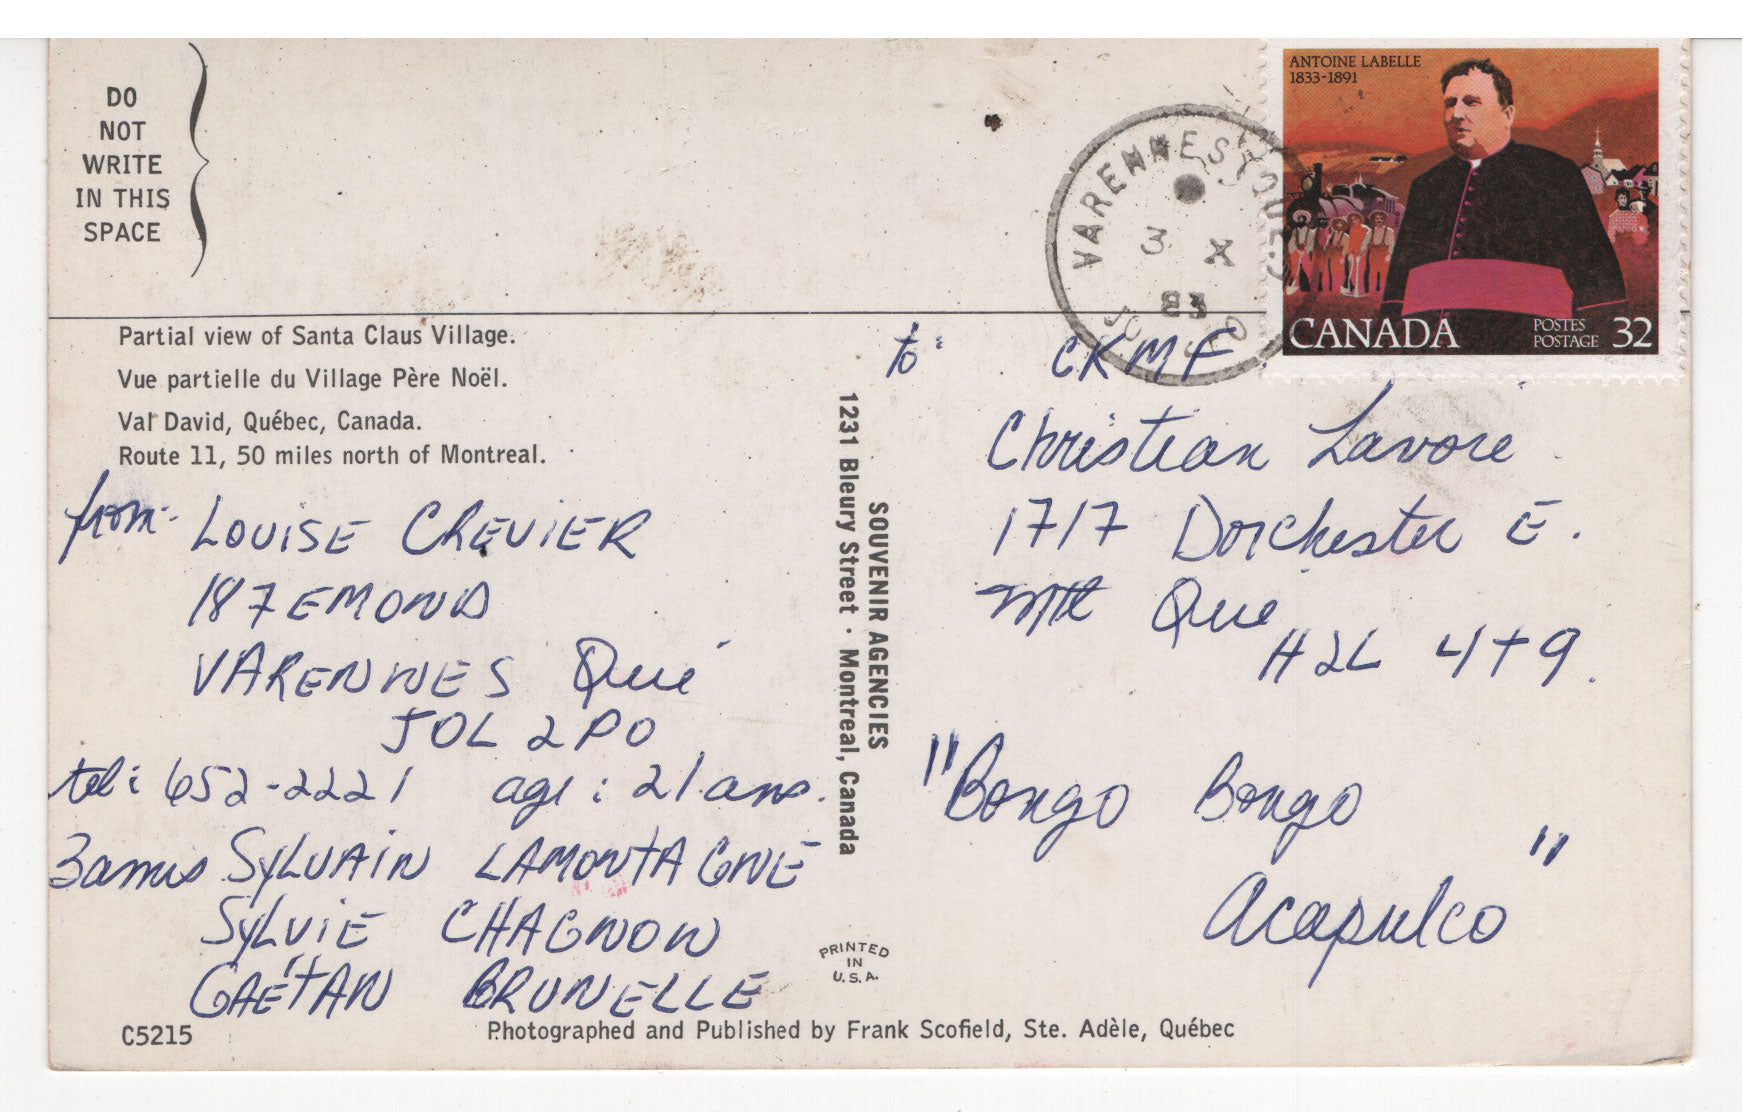 DO
NOT
WRITE
IN THIS
SPACE
ANTOINE LABELLE
1833-1891
CANADA
POSTES
POSTAGE 32
VARENNES QUE.
3 X
83
Partial view of Santa Claus Village.
Vue partielle du Village Père Noël.
Val David, Québec, Canada.
Route 11, 50 miles north of Montreal.
from: LOUISE CREVIER
187 EMOND
VARENNES Qué
JOL 2PO
tel: 652-2221 age: 21 ans.
3 amis SYLVAIN LAMONTAGNE
SYLVIE CHAGNON
GAÉTAN BRUNELLE
SOUVENIR AGENCIES
1231 Bleury Street · Montreal, Canada
PRINTED
IN
U.S.A.
to: CKMF
Christian Lavoie
1717 Dorchester E.
Mtl Que
H2L 4T9.
"Bongo Bongo
Acapulco"
C5215
Photographed and Published by Frank Scofield, Ste. Adèle, Québec